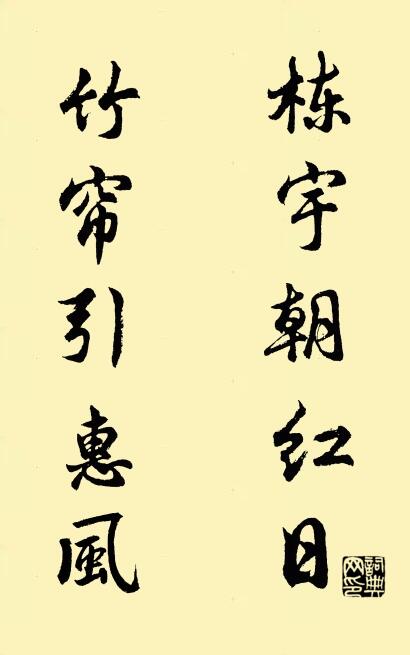 栋宇朝红日
竹帘引惠風
詞典网印